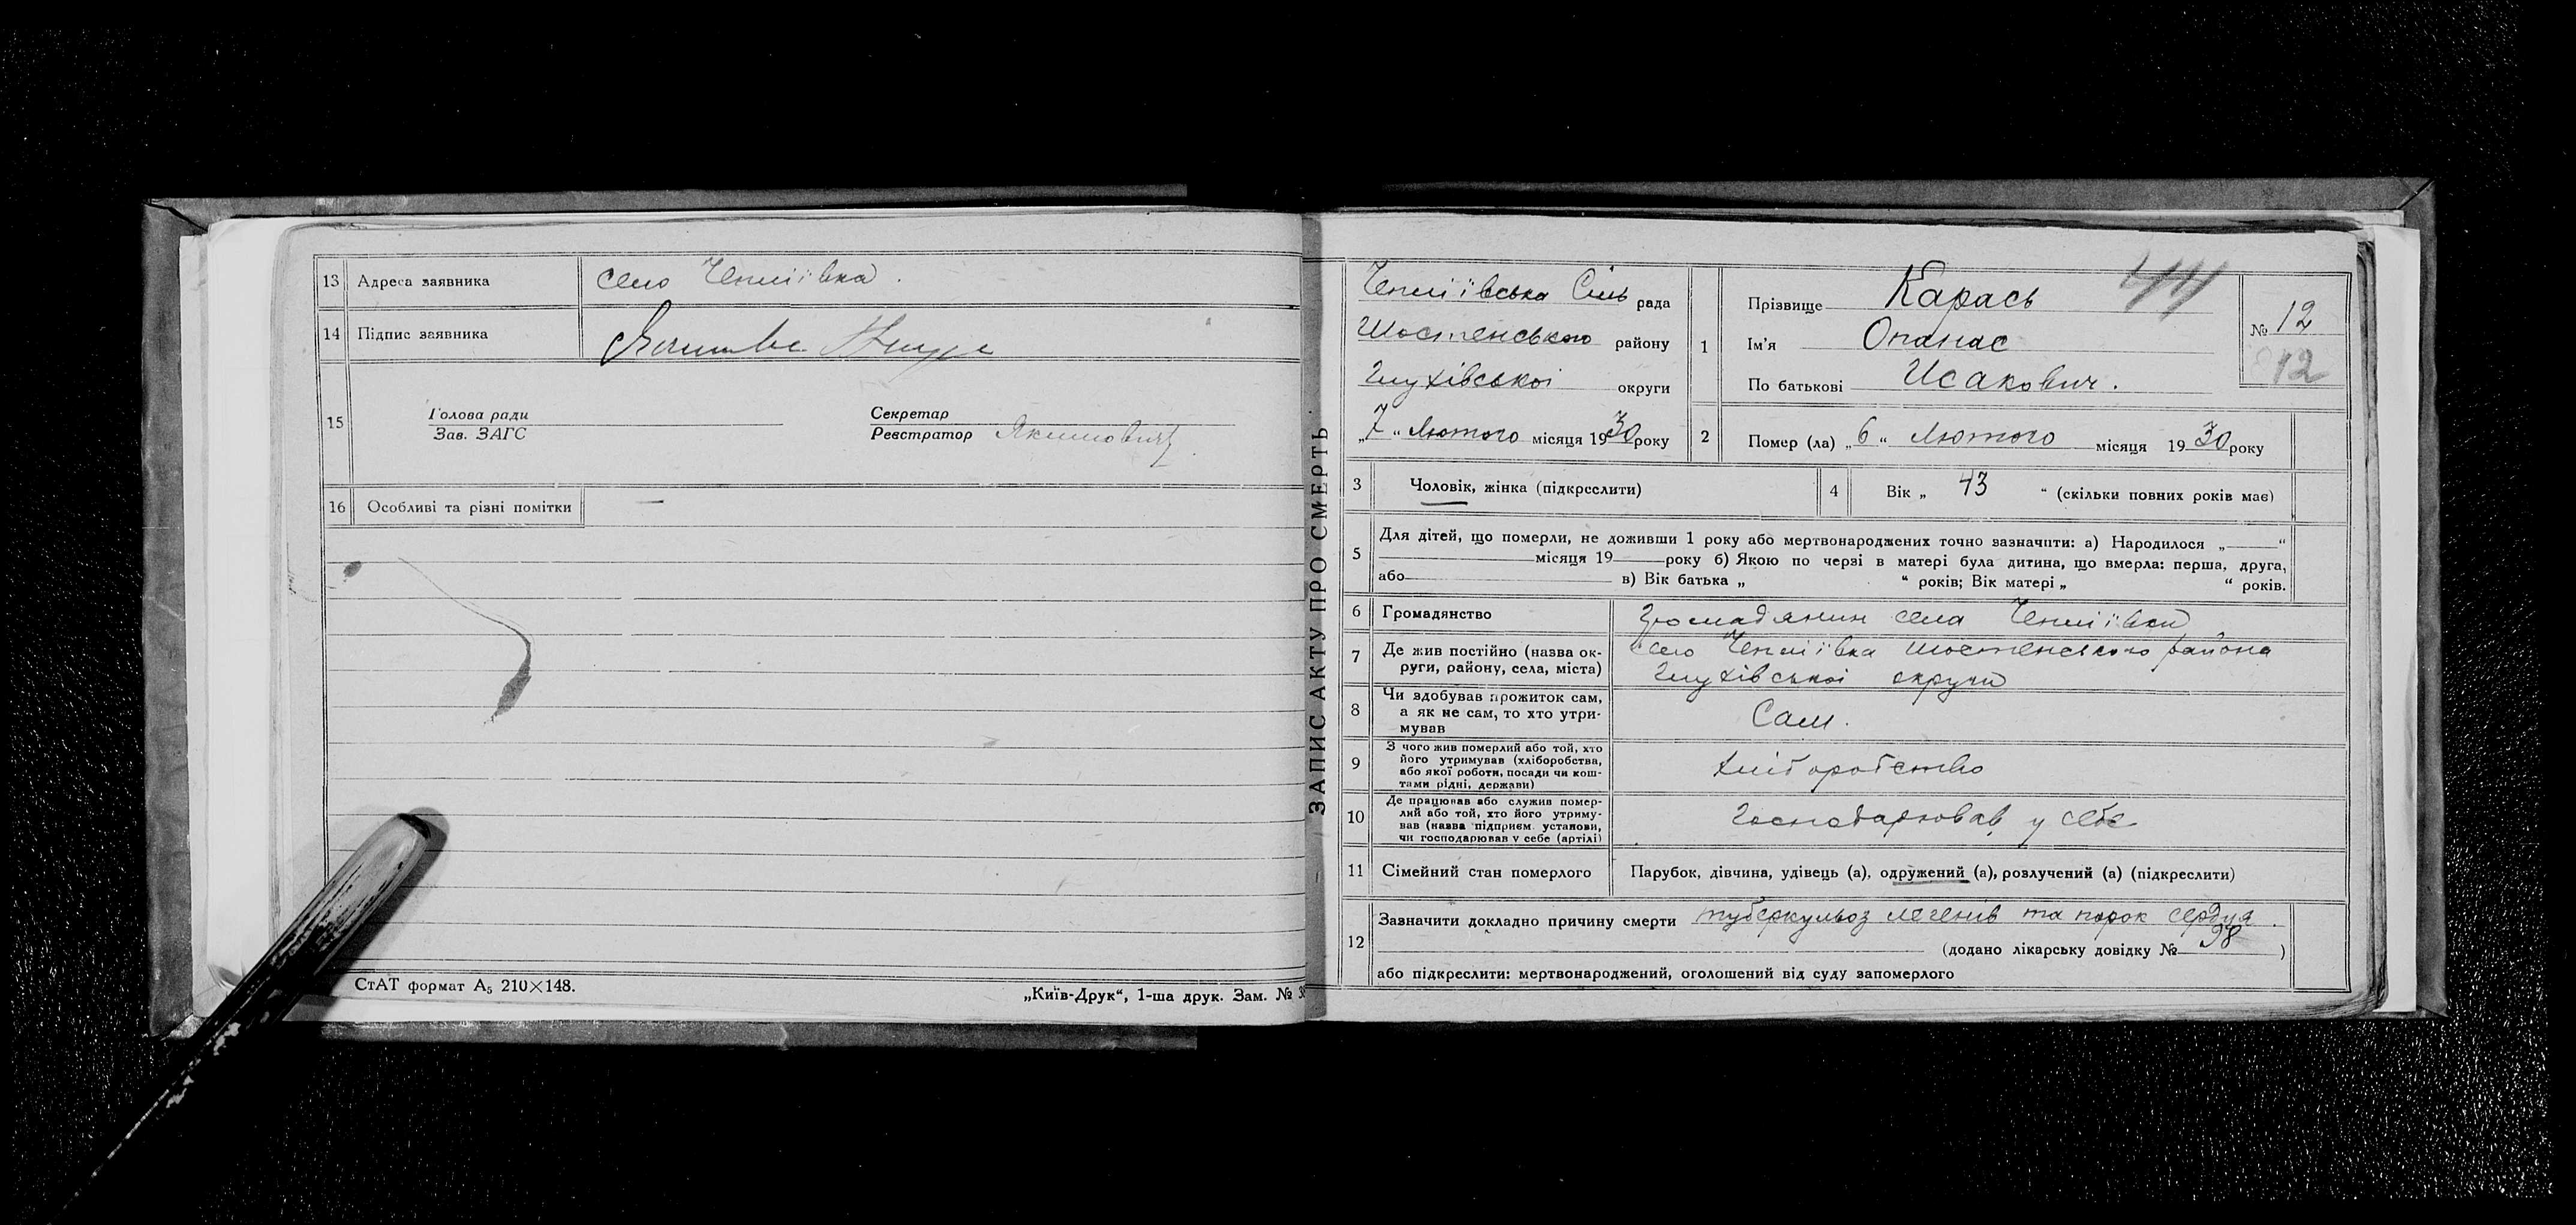 13 Адреса заявника село Чепліївка.
14 Підпис заявника
15 Голова ради
Зав. ЗАГС
Секретар
Реєстратор Якимович
16 Особливі та різні помітки —
СтАТ формат А₅ 210×148.
„Київ-Друк“, 1-ша друк. Зам. №
ЗАПИС АКТУ ПРО СМЕРТЬ
Чепліївська Сіль рада
Шостенського району
Глухівської округи
„7“ Лютого місяця 1930 року
1 Прізвище Карась
Ім'я Опанас
По батькові Исакович.
№ 12
12
2 Помер (ла) „6“ Лютого місяця 1930 року
3 Чоловік, жінка (підкреслити)
4 Вік „ 43 “ (скільки повних років має)
5 Для дітей, що померли, не доживши 1 року або мертвонароджених точно зазначити: а) Народилося „ “
місяця 19 року б) Якою по черзі в матері була дитина, що вмерла: перша, друга,
або в) Вік батька „ “ років; Вік матері „ “ років.
6 Громадянство громадянин села Чепліївки
7 Де жив постійно (назва ок-
руги, району, села, міста)
село Чепліївка Шостенського района
Глухівської округи
8 Чи здобував прожиток сам,
а як не сам, то хто утри-
мував
Сам.
9 З чого жив померлий або той, хто
його утримував (хліборобства,
або якої роботи, посади чи кош-
тами рідні, держави)
хліборобство
10 Де працював або служив помер-
лий або той, хто його утриму-
вав (назва підприєм. установи,
чи господарював у себе (артілі)
Господарював у себе
11 Сімейний стан померлого Парубок, дівчина, удівець (а), одружений (а), розлучений (а) (підкреслити)
12 Зазначити докладно причину смерти туберкульоз легенів та порок сердця.
(додано лікарську довідку № 98 )
або підкреслити: мертвонароджений, оголошений від суду запомерлого